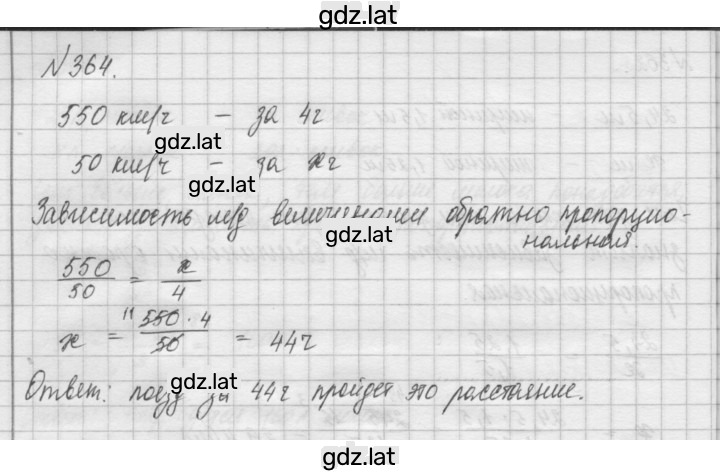 gdz.lat
№364.
550 км/ч – за 4ч
gdz.lat
50 км/ч – за xч
gdz.lat
Зависимость м/д величинами обратно пропорцио-
нальная.
gdz.lat
550/50 = x/4
x = 11 550·4/50 = 44ч
gdz.lat
Ответ: поезд за 44ч пройдет это расстояние.
gdz.lat
gdz.lat